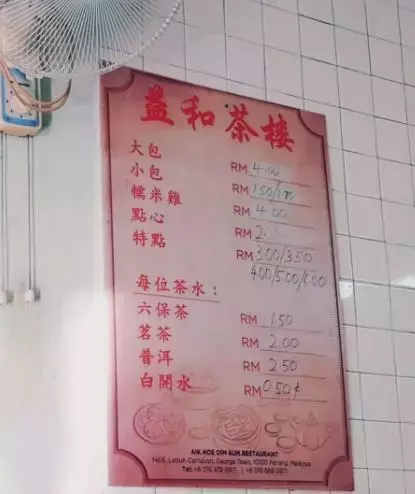 益和茶楼
大包 RM 4.00
小包 RM 1.50/1.70
糯米雞 RM 4.00
點心 RM 2.
特點 RM 3.00/3.50
4.00/5.00/6.00
每位茶水：
六保茶 RM 1.50
茗茶 RM 2.00
普洱 RM 2.50
白開水 RM 0.50 ¢
AIK HOE DIM SUM RESTAURANT
No.6, Lebuh Carnarvon, George Town, 10100 Penang, Malaysia